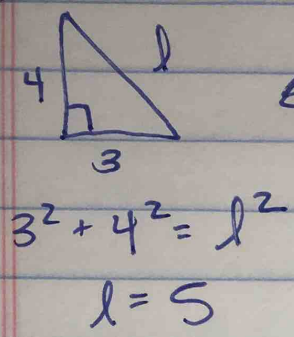 l
4
3
3² + 4² = l²
l = 5